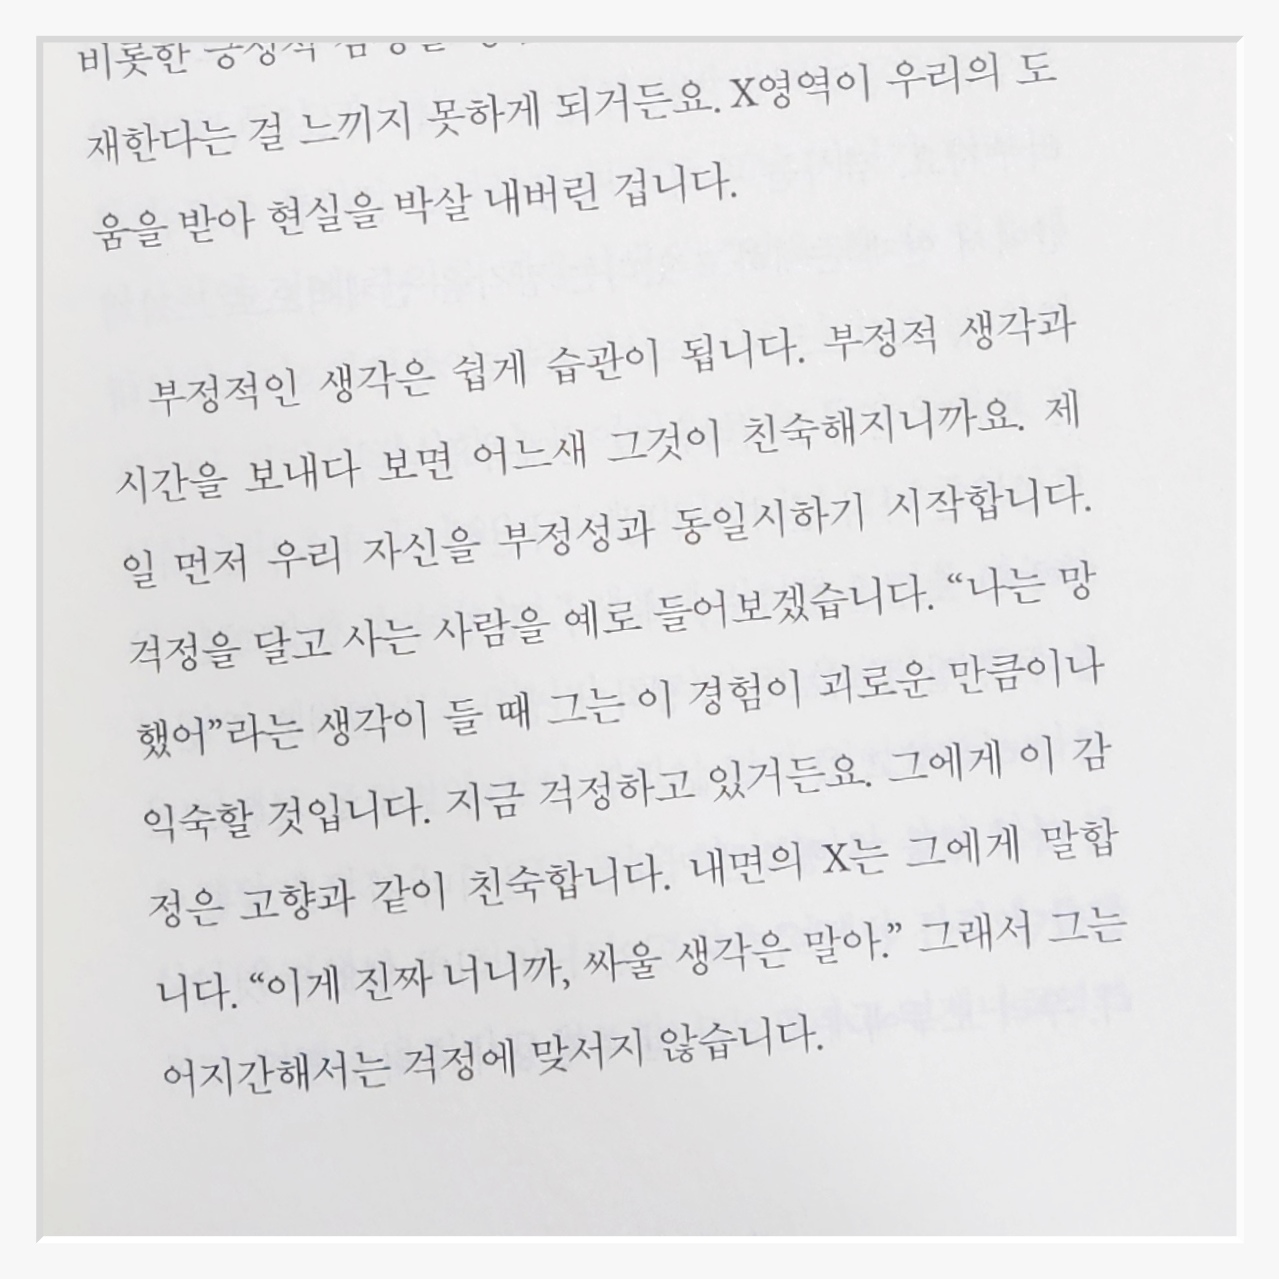 비롯한 긍정적 감정을
재한다는 걸 느끼지 못하게 되거든요. X영역이 우리의 도
움을 받아 현실을 박살 내버린 겁니다.
부정적인 생각은 쉽게 습관이 됩니다. 부정적 생각과
시간을 보내다 보면 어느새 그것이 친숙해지니까요. 제
일 먼저 우리 자신을 부정성과 동일시하기 시작합니다.
걱정을 달고 사는 사람을 예로 들어보겠습니다. “나는 망
했어”라는 생각이 들 때 그는 이 경험이 괴로운 만큼이나
익숙할 것입니다. 지금 걱정하고 있거든요. 그에게 이 감
정은 고향과 같이 친숙합니다. 내면의 X는 그에게 말합
니다. “이게 진짜 너니까, 싸울 생각은 말아.” 그래서 그는
어지간해서는 걱정에 맞서지 않습니다.